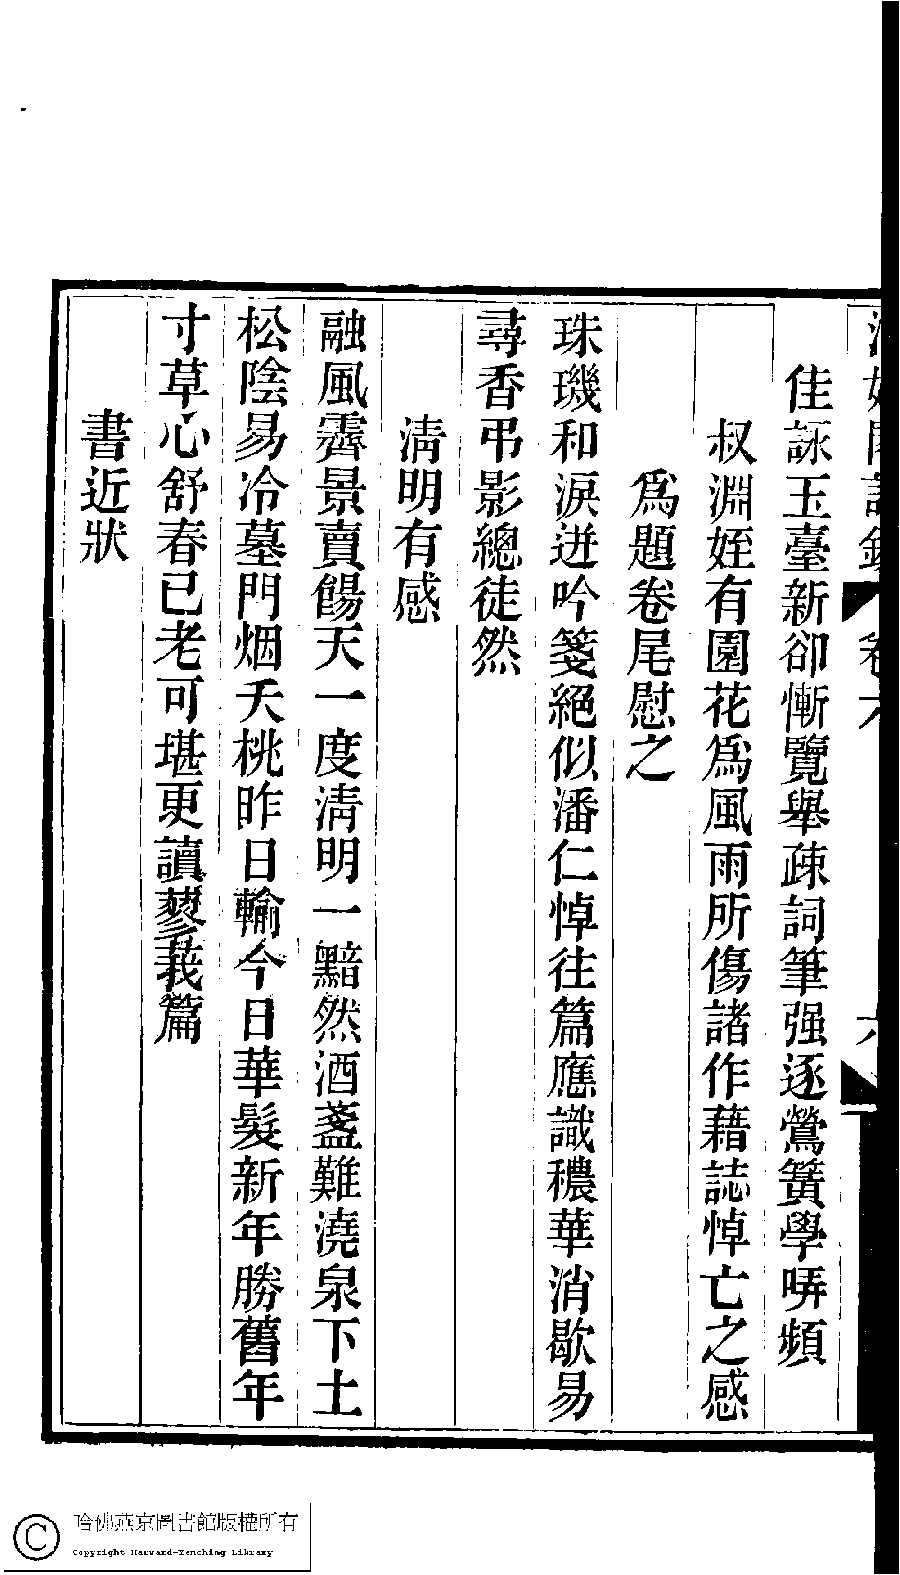 佳詠玉臺新卻慚覽舉疎詞筆强逐鶯簧學哢頻
叔淵姪有園花爲風雨所傷諸作藉誌悼亡之感
爲題卷尾慰之
珠璣和淚迸吟箋絕似潘仁悼往篇應識穠華消歇易
尋香弔影總徒然
淸明有感
融風霽景賣餳天一度淸明一黯然酒盞難澆泉下土
松陰易冷墓門烟夭桃昨日輸今日華髮新年勝舊年
寸草心舒春已老可堪更讀蓼莪篇
書近狀
哈佛燕京圖書館版權所有
Copyright Harvard-Yenching Library